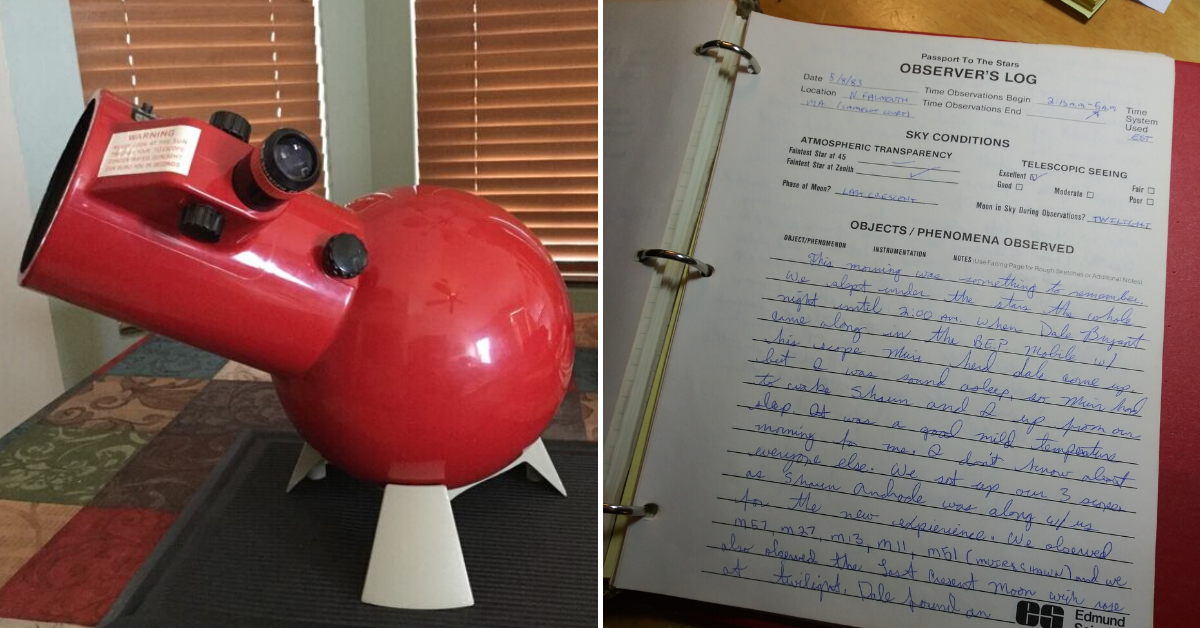 WARNING
NEVER LOOK AT THE SUN
THROUGH YOUR TELESCOPE
CONCENTRATED SUNLIGHT
CAN BURN YOU IN SECONDS
Passport To The Stars
OBSERVER'S LOG
Date 5/8/83 Time Observations Begin 2:15am-5am
Location N. FALMOUTH Time Observations End
MA Time System Used EST
SKY CONDITIONS
ATMOSPHERIC TRANSPARENCY
Faintest Star at 45
Faintest Star at Zenith
Phase of Moon? LAST CRESENT
TELESCOPIC SEEING
Excellent Fair
Good Moderate Poor
Moon in Sky During Observations? TWILIGHT
OBJECTS / PHENOMENA OBSERVED
OBJECT/PHENOMENON INSTRUMENTATION NOTES (Use Facing Page for Rough Sketches or Additional Notes)
This morning was something to remember.
We slept under the stars the whole
night until 2:00 AM. when Dale Bryant
came along in the BEP Mobile w/
his scope. Muir herd dale come up,
but I was sound asleep, so Muir had
to wake Shaun and I up from our
slep. It was a good mild temperture
morning for me, I don't know about
everyone else. We set up our 3 scopes
as Shaun Andrade was along w/ us
for the new expierience. We observed
M57, M27, M13, M11, M51 and we
also observed the Last Cresent Moon
at twilight. Dale found an
es Edmund